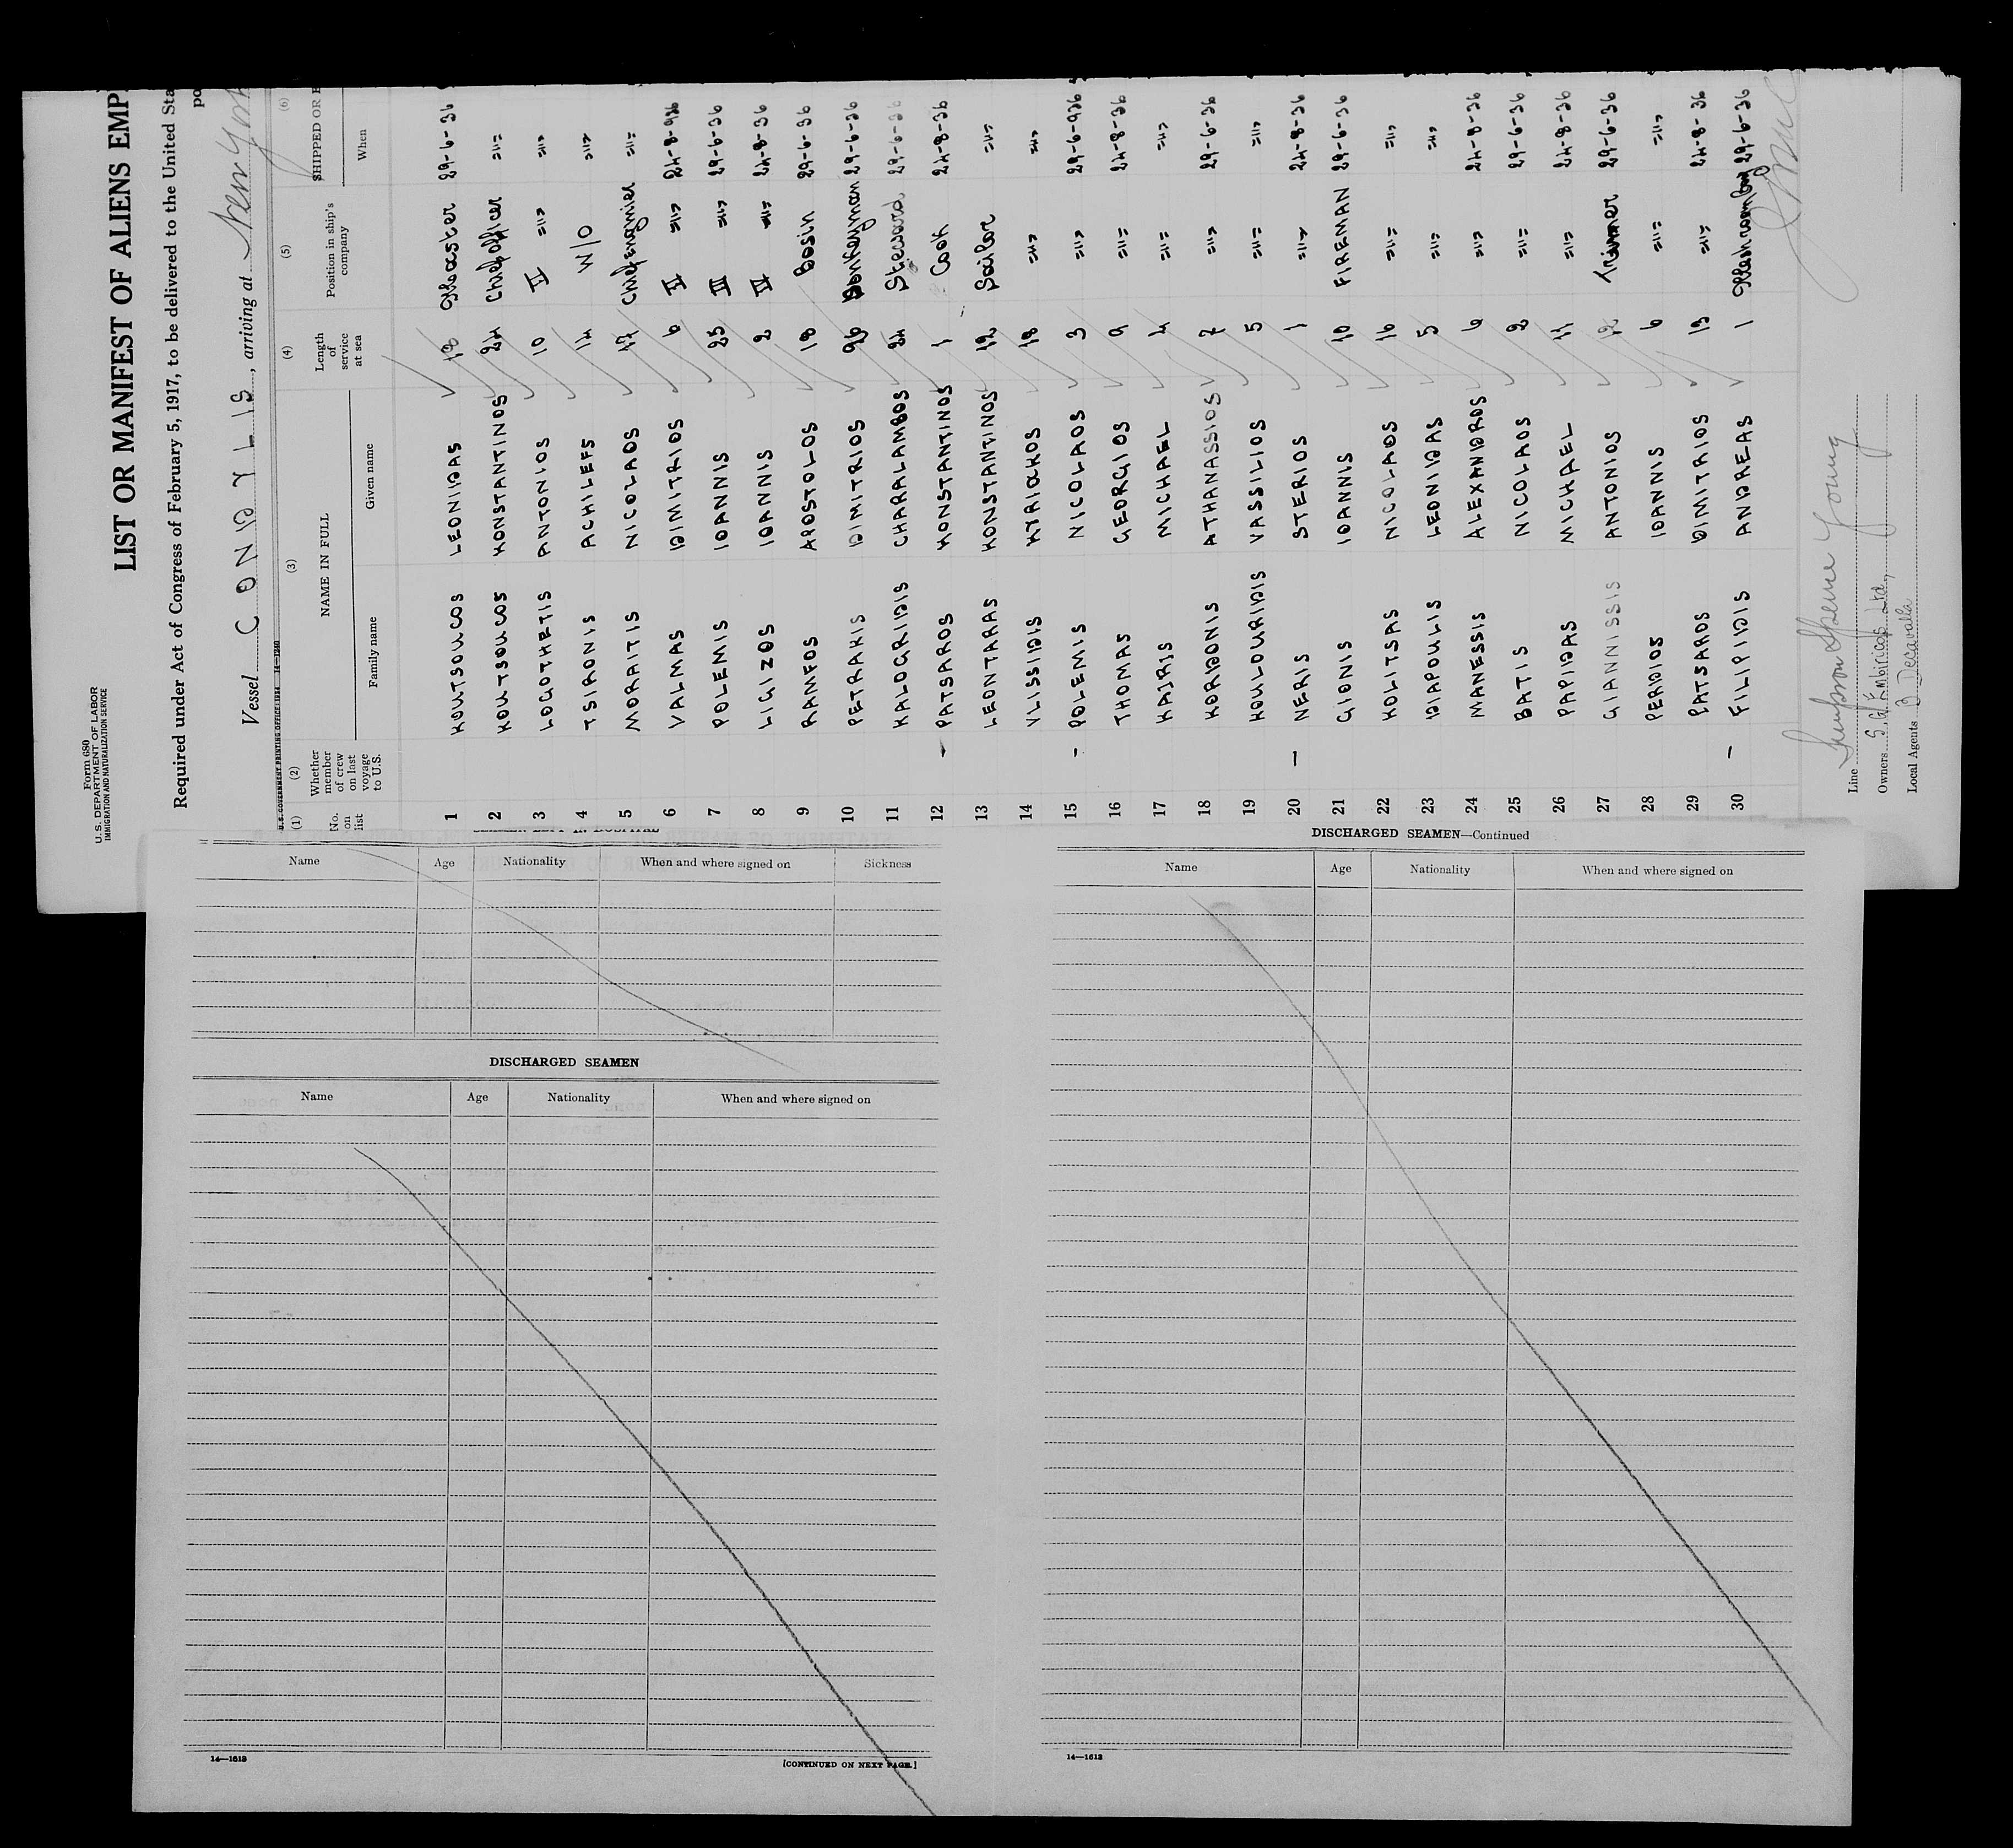 Form 680
U. S. DEPARTMENT OF LABOR
IMMIGRATION AND NATURALIZATION SERVICE
LIST OR MANIFEST OF ALIENS EMP
Required under Act of Congress of February 5, 1917, to be delivered to the United Sta
po
Vessel CONDYLIS, arriving at New York
U.S. GOVERNMENT PRINTING OFFICE
(1) (2) (3) (4) (5) (6)
No. on list Whether member of crew on last voyage to U.S. NAME IN FULL Length of service at sea Position in ship's company SHIPPED OR E
Family name Given name When
1 KOUTSOUCOS LEONIDAS 18 Master 29-6-36
2 KOUTSOUCOS KONSTANTINOS 24 Chief officer =11=
3 LOGOTHETIS ANTONIOS 10 II =11= =11=
4 TSIRONIS ACHILEFS 14 W/O =11=
5 MORAITIS NICOLAOS Chief engineer =11=
6 VALMAS DIMITRIOS 6 II =11= 24-8-936
7 POLEMIS IOANNIS 25 III =11= 29-6-36
8 LIGIZOS IOANNIS 2 =11= 24-8-36
9 RAMFOS APOSTOLOS 18 Bosin 29-6-36
10 PETRAKIS DIMITRIOS 26 Donkeyman 29-6-36
11 KALOGRIDIS CHARALAMBOS 24 Steward 29-6-36
12 - PATSAROS KONSTANTINOS 1 Cook 24-8-36
13 LEONTARAS KONSTANTINOS 12 Sailor =11=
14 VLISSIDIS KYRIACKOS 18 =11= =11=
15 - POLEMIS NICOLAOS 3 =11= 29-6-936
16 THOMAS GEORGIOS 9 =11= 24-8-36
17 KAIRIS MICHAEL 4 =11= =11=
18 KORDONIS ATHANASSIOS 7 =11= 29-6-36
19 KOULOURIDIS VASSILIOS 5 =11= =11=
20 - NERIS STERIOS 1 =11= 24-8-36
21 GIONIS IOANNIS 10 FIREMAN 29-6-36
22 KOLITSAS NICOLAOS 16 =11= =11=
23 DIAPOULIS LEONIDAS 5 =11= =11=
24 MANESSIS ALEXANDROS 6 =11= 24-8-36
25 BATIS NICOLAOS 2 =11= 29-6-36
26 PAPIDAS MICHAEL 11 =11= 24-8-36
27 GIANNISSIS ANTONIOS 12 Trimmer 29-6-36
28 PERIDIOS IOANNIS 6 =11= =11=
29 PATSAROS DIMITRIOS 19 =11= 24-8-36
30 - FILIPIDIS ANDREAS 1 29-6-36
Line Simpson Spence Young
Owners S. G. Embiricos Ltd.,
Local Agents Decavalla
SEAMEN LEFT IN HOSPITAL
Name Age Nationality When and where signed on Sickness
DISCHARGED SEAMEN
Name Age Nationality When and where signed on
14—1613
[CONTINUED ON NEXT PAGE.]
DISCHARGED SEAMEN—Continued
Name Age Nationality When and where signed on
14—1613